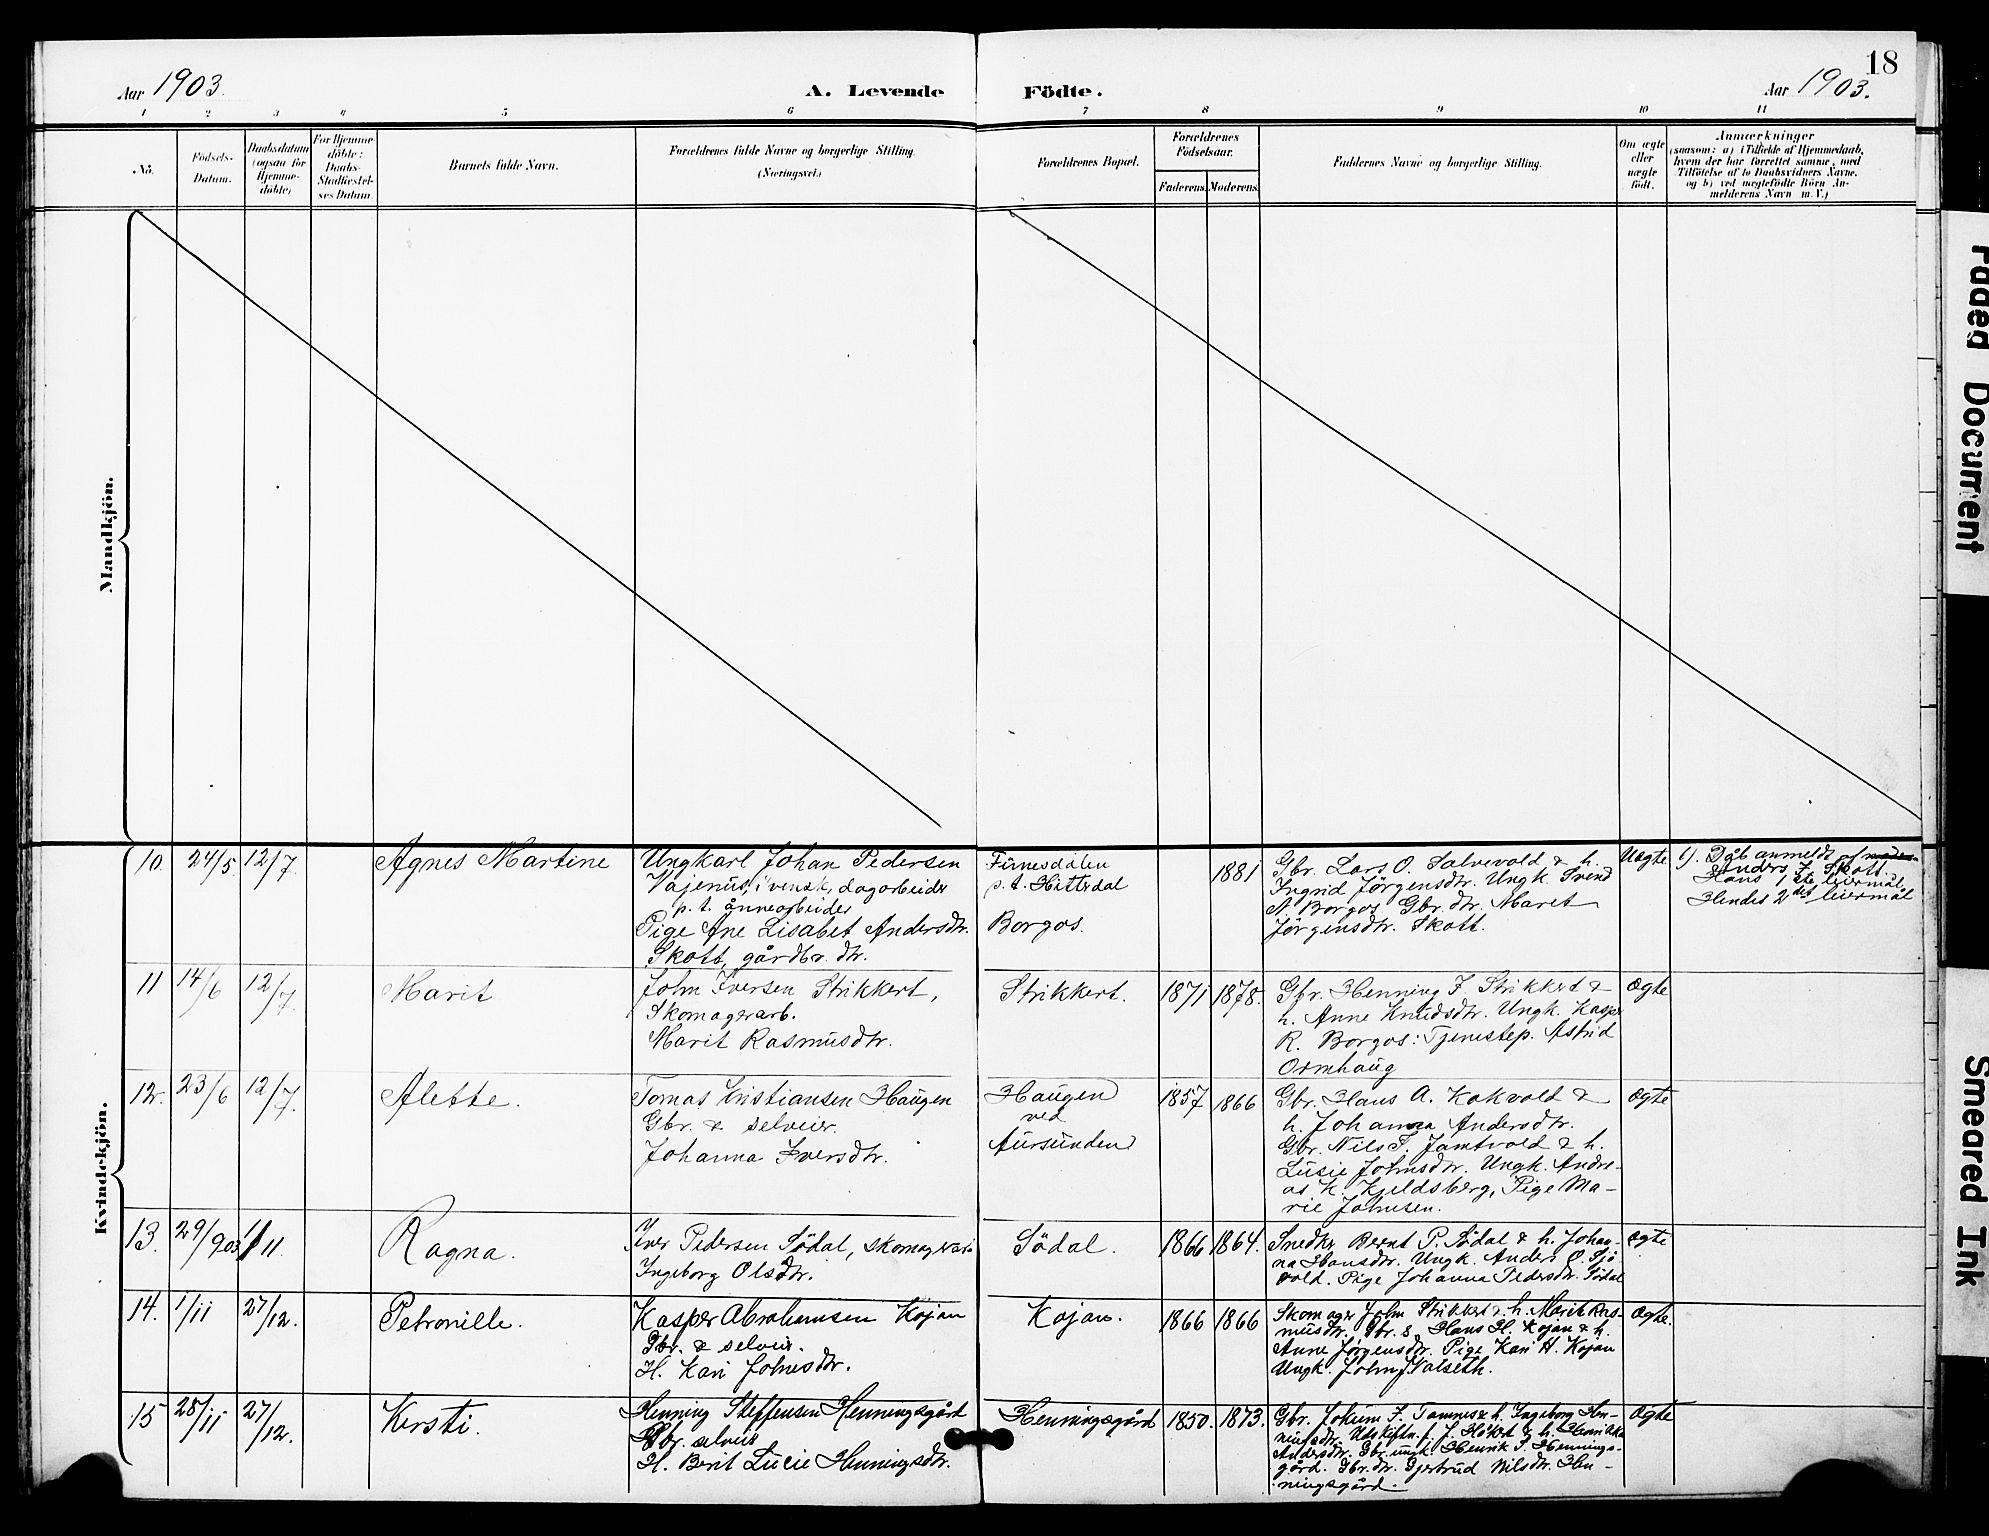 18
Aar 1903.
A. Levende Födte.
Aar 1903.
1 2 3 4 5 6 7 8 9 10 11
No.
Födsels-
Datum.
Daabsdatum
(ogsaa for
Hjemme-
döbte)
For Hjemme-
döbte:
Daabs-
Stadfæstel-
ses Datum.
Barnets fulde Navn.
Forældrenes fulde Navne og borgerlige Stilling.
(Næringsvei.)
Forældrenes Bopæl.
Forældrenes
Födselsaar.
Faderens. Moderens.
Faddernes Navne og borgerlige Stilling.
Om ægte
eller
uægte
født.
Anmærkninger
(saasom: a) i Tilfælde af Hjemmedaab,
hvem der har forrettet samme, med
Tilföielse af to Daabsvidners Navne,
og b) ved uægtefödte Börn An-
melderens Navn m. V.)
Mandkjön.
Kvindekjön.
10. 24/5 12/7. Agnes Martine
Ungkarl Johan Pedersen
Vajenius, svensk, dagarbeider
p. t. ånnearbeider
Pige Ane Lisabet Andersdtr.
Skott, gårdbr. dtr.
Finnesdalen
p. t. Hittedal
Borgos.
1881
Gbr. Lars O. Salvevold & h.
Ingrid Jörgensdtr. Ungk. Svend
A. Borgos Gbr. dtr. Maret
Jörgensdtr. Skott.
Uægte
1). Dåb anmeldt af
Anders J. Skott.
Hans 1ste leiermål,
Hendes 2det leiermål
11 14/6 12/7. Marit
John Iversen Strikkert,
Skomagerarb.
Marit Rasmusdtr.
Strikkert.
1871 1878.
Gbr. Henning J. Strikkert &
h. Anne Knudsdtr. Ungk. Kasper
R. Borgos: Tjenestep. Astrid
Ormhaug
Ægte
12. 23/6 12/7. Alette.
Tomas Kristiansen Haugen
Gbr. & selveier.
Johanna Iversdtr.
Haugen
ved
Aursunden
1857 1866
Gbr. Hans A. Kokvold &
h. Johanna Andersdtr.
Gbr. Nils T. Jamtvold & h.
Lusie Johnsdtr. Ungk. Andre-
as K. Kjeldsberg, Pige Ma-
rie Johnsen.
Ægte
13. 29/9 03 1/11. Ragna.
Iver Pedersen Södal, skomagerarb
Ingeborg Olsdtr.
Södal.
1866 1864.
Snedkr Bernt P. Södal & h. Johan-
na Hansdtr. Ungk. Anders O. Sjö
vold. Pige Johanna Pedersdtr. Södal
Ægte
14. 1/11 27/12. Petronille.
Kasper Abrahamsen Kojan
Gbr. & selveier.
H. Kari Johnsdtr.
Kojan.
1866 1866
Skomager John Strikkert & h. Marit Ras-
musdtr. Gbr. s. Hans H. Kojan & h.
Anne Jörgensdtr. Pige Kari H. Kojan
Ungk. John J Valseth.
Ægte.
15 28/11 27/12. Kersti.
Henning Steffensen Henningsgård
Gbr. selveier
H. Berit Lucie Henningsdtr.
Henningsgård
1850. 1873.
Gbr. Johum J. Tamnes & h. Ingeborg Hen-
ningsdtr. Udskiftn. f. J. Hökert & h. Henrikke
Andersdtr. Gbr. ungk. Henrik S. Hennings-
gård. Gbr. dtr. Gjertrud Nilsdtr. Hen-
ningsgård.
Ægte
Faded Document
Smeared Ink